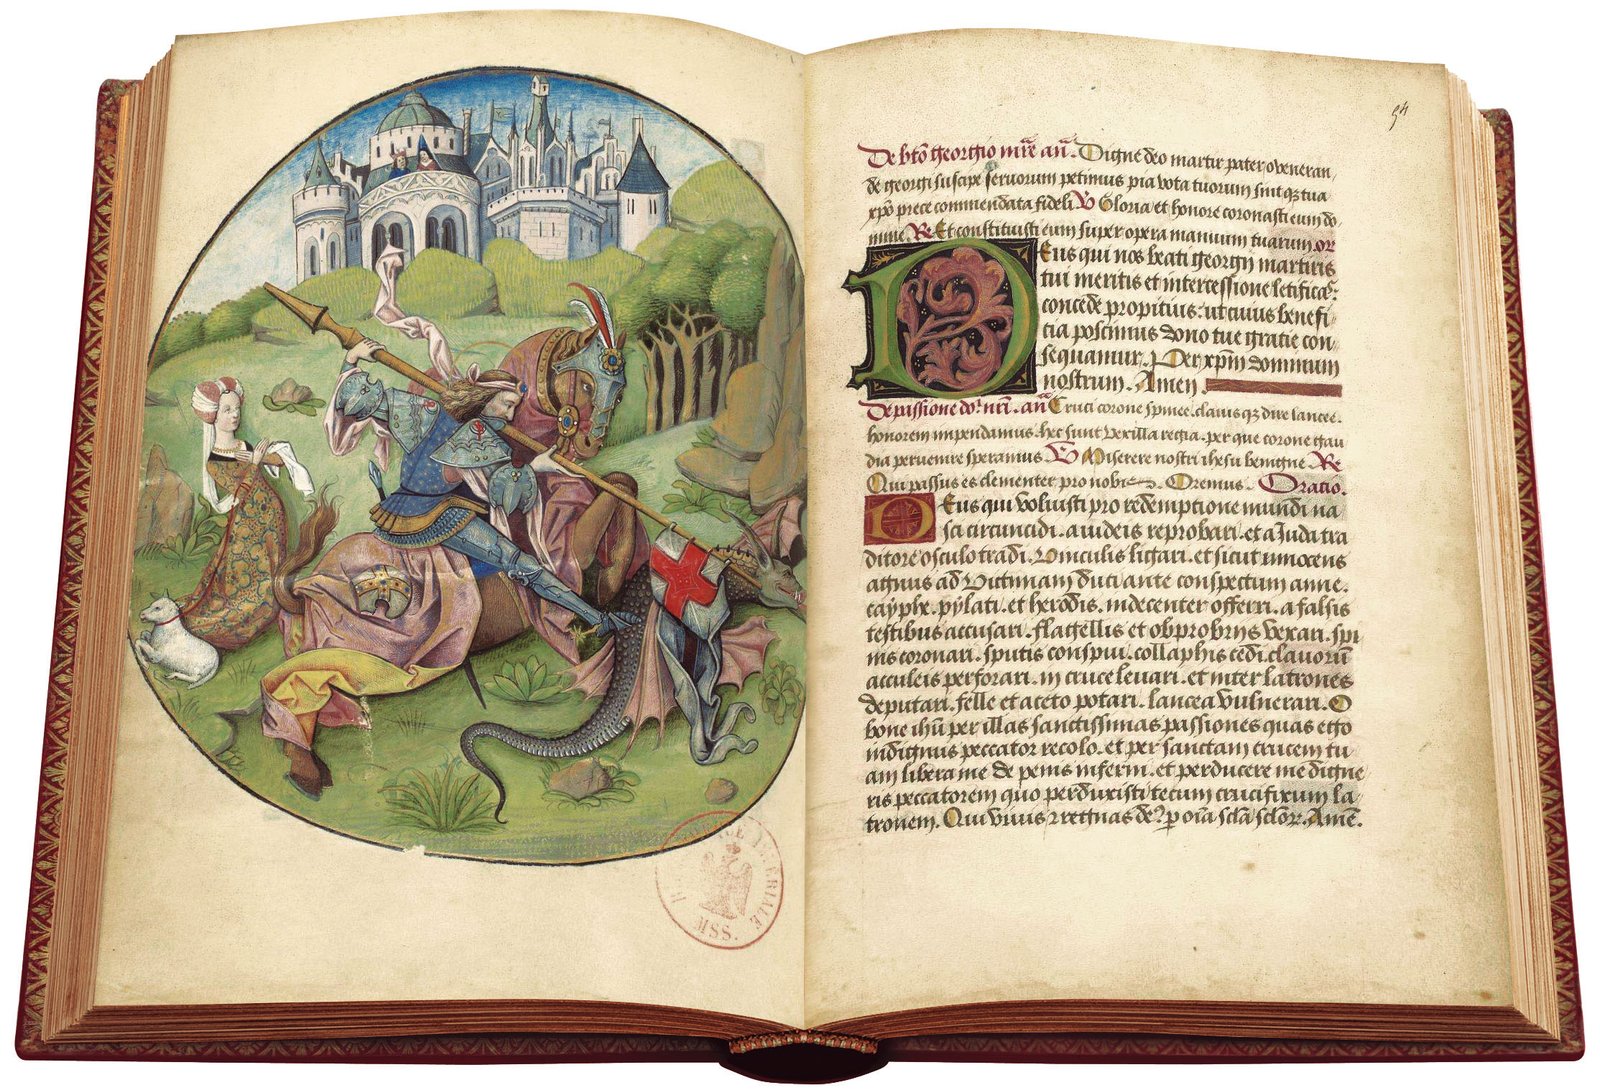 54
De btō georgio mr̄e an̄. Digne deo martir pater o veneran
de georgi suscipe servorum petimus pia vota tuorum sint qz tua
xpō prece commendata fideli V Gloria et honore coronasti eum do
mine. Re Et constituisti eum super opera manuum tuarum or
Deus qui nos beati georgii martiris
tui meritis et intercessione letificas:
concede propitius: ut cuius benefi
cia poscimus dono tue gratie con
sequamur. Per xpm̄ dominum
nostrum. Amen
De passione do. nr̄i. an̄ Cruci corone spinee. clavis qz dire lancee.
honorem impendamus. hec sunt vexilla regia. per que corone gau
dia pervenire speramus. V Miserere nostri ihesu benigne Re
Qui passus es clementer pro nobis. Oremus. Oratio.
Deus qui voluisti pro redemptione mundi na
sci circuncidi. a iudeis reprobari. et a Juda tra
ditore osculo tradi. Vinculis ligari. et sicut innocens
agnus ad Victimam duci ante conspectum anne.
cayphe. pylati. et herodis. indecenter offerri. a falsis
testibus accusari. flagellis et obprobriis vexari. spi
nis coronari. sputis conspui. collaphis cedi. clavorū
acculeis perforari. in cruce levari. et inter latrones
deputari. felle et aceto potari. lancea vulnerari. O
bone ihū per illas sanctissimas passiones quas ego
indignus peccator recolo. et per sanctam crucem tu
am libera me de penis inferni. et perducere me digne
ris peccatorem quo perduxisti tecum crucifixum la
tronem. Qui vivis 2 regnas de9 p oīa scl̄a scl̄or. Amē.
MSS.